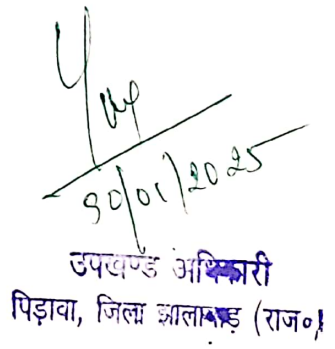 30/01/2025
उपखण्ड अधिकारी
पिड़ावा, जिला झालावाड़ (राज०)